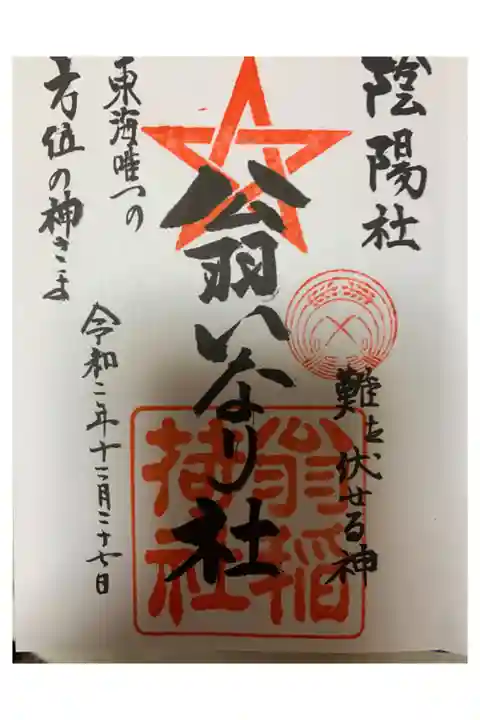 陰陽社
難を伏せる神
翁いなり社
東海唯一の
方位の神さま
令和二年十二月二十七日
翁稲
荷社